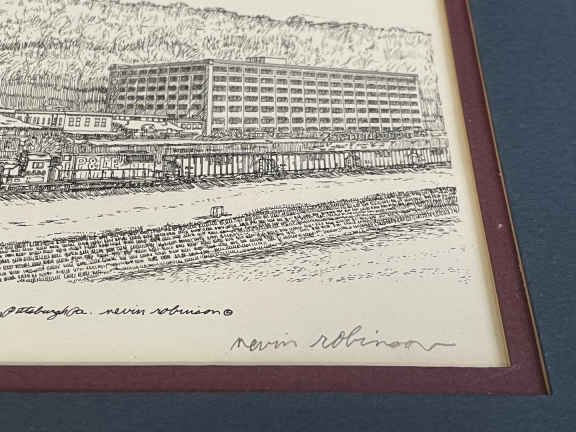 P&LE
Pittsburgh Pa. nevin robinson ©
nevin robinson